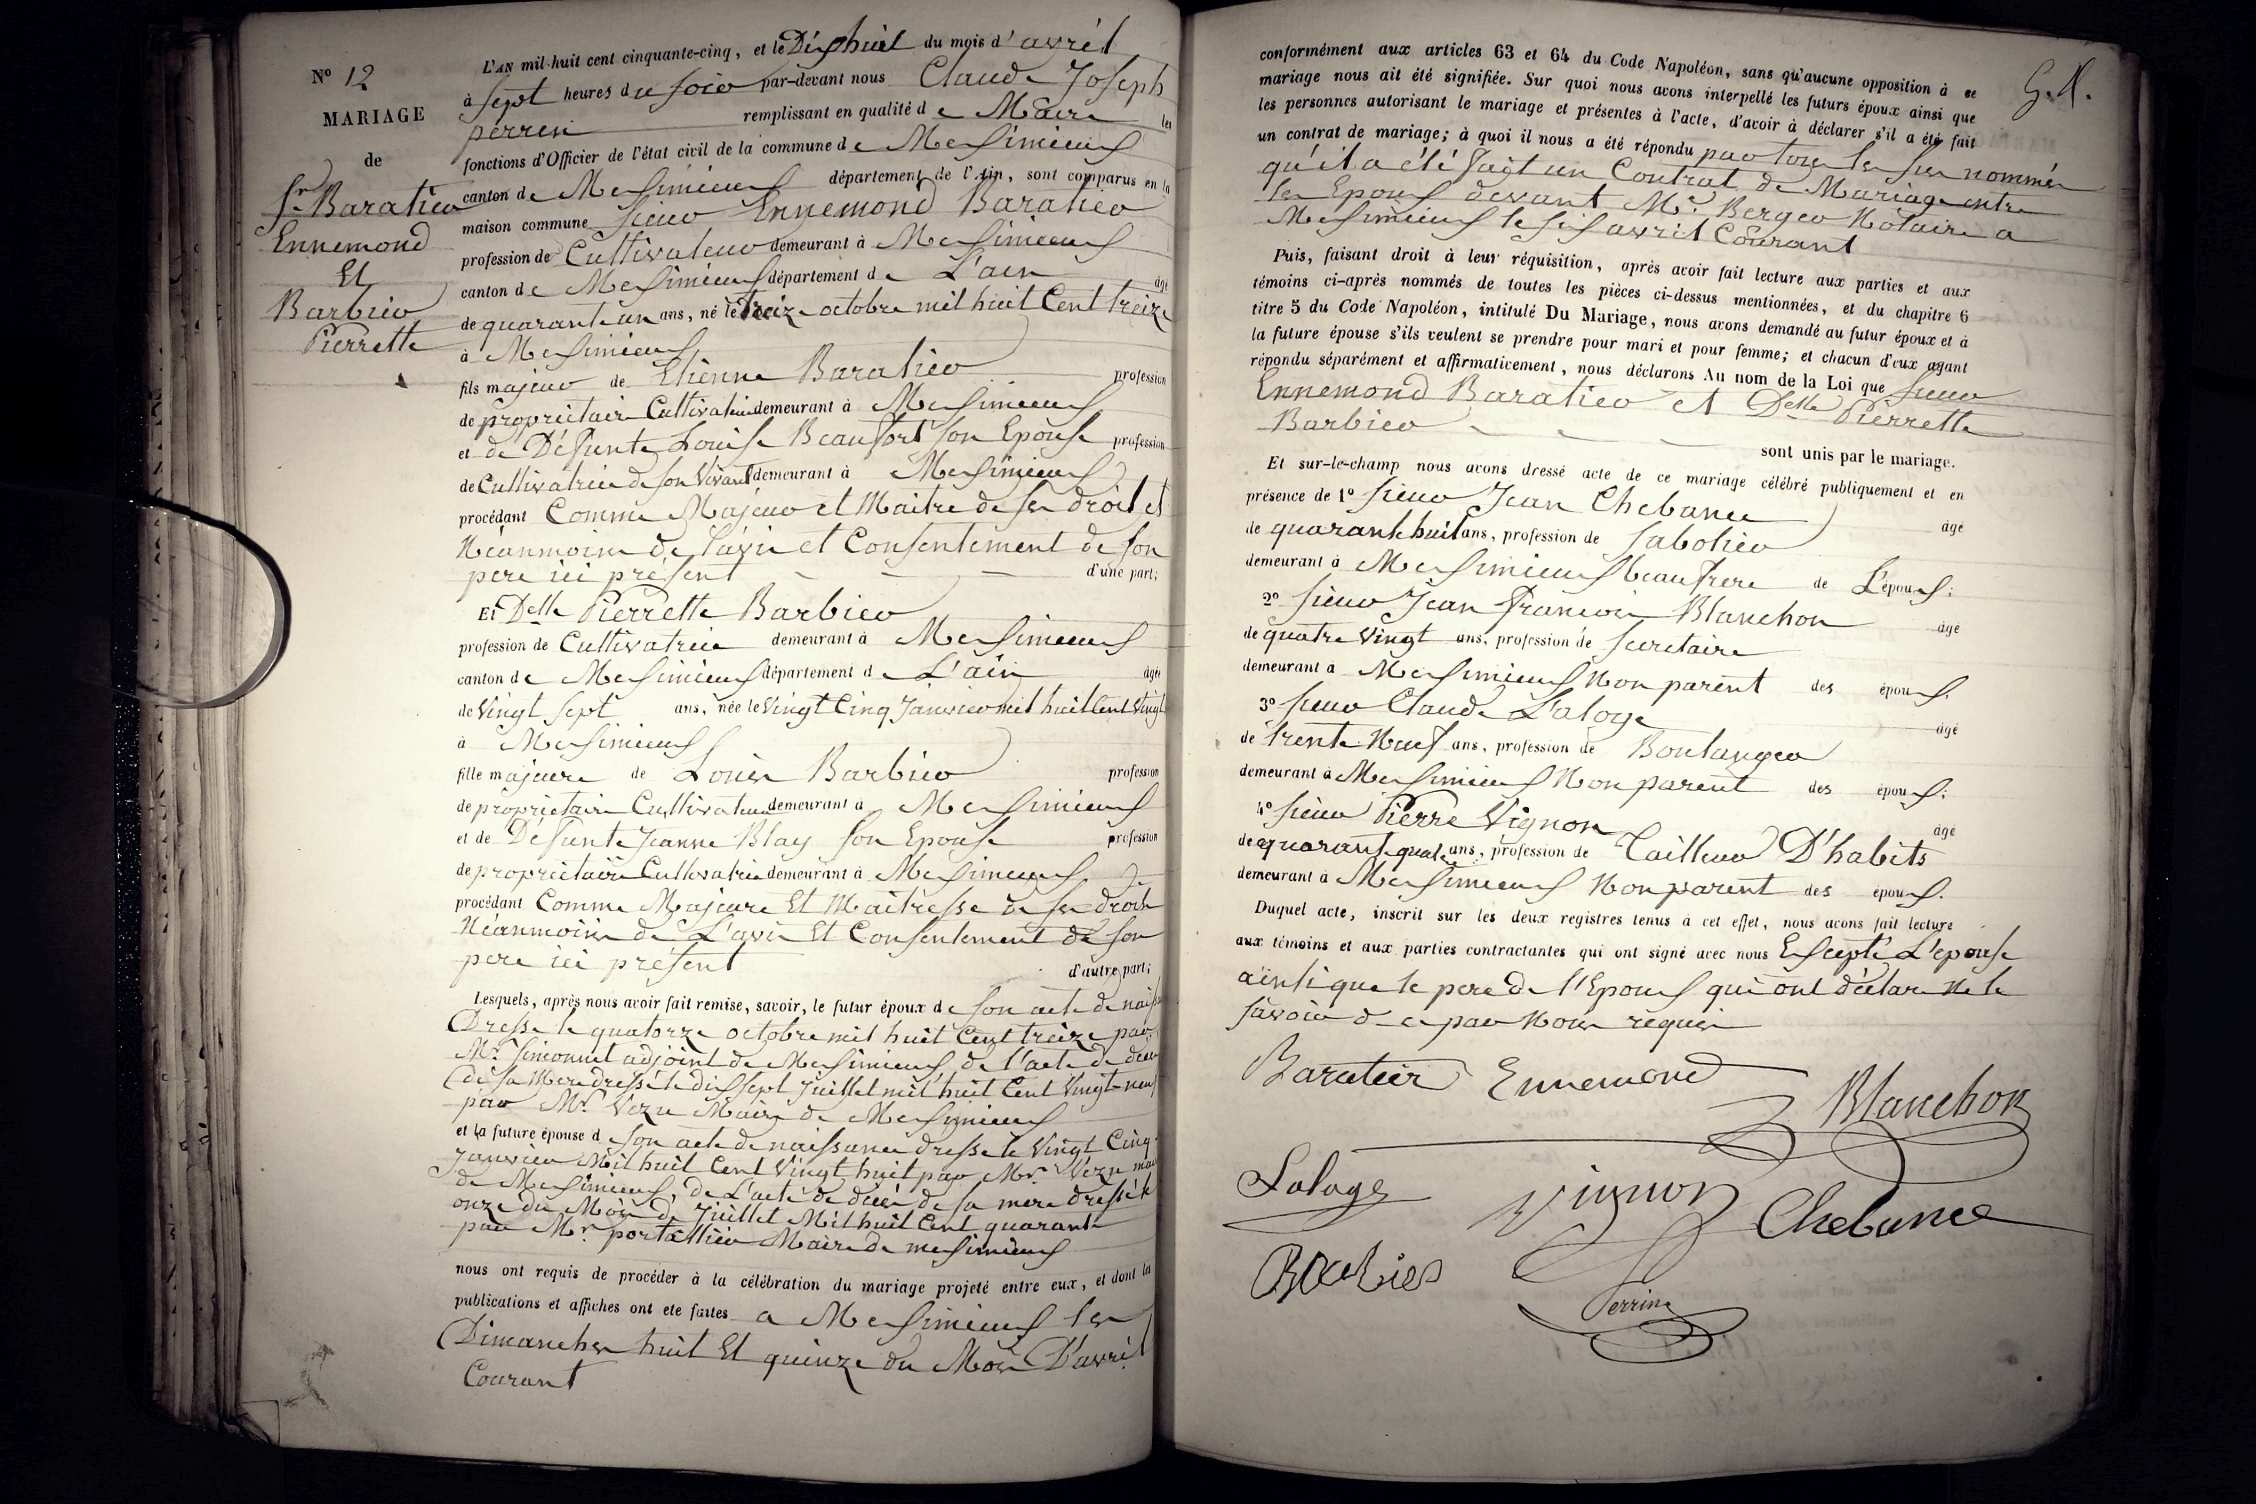 N° 12
MARIAGE
de
Sr Baratier
Ennemond
Et
Barbier
Pierrette
L'AN mil huit cent cinquante-cinq, et le Dix huit du mois d'avril
à Sept heures du soir par-devant nous Claude Joseph
perrin remplissant en qualité de Maire les
fonctions d'Officier de l'état civil de la commune de Meximieux
canton de Meximieux département de l'Ain, sont comparus en la
maison commune sieur Ennemond Baratier
profession de Cultivateur demeurant à Meximieux
canton de Meximieux département de L'ain âgé
de quarante un ans, né le treize octobre mil huit Cent treize
à Meximieux
fils majeur de Etienne Baratier profession
de propriétaire Cultivateur demeurant à Meximieux
et de Défunte Louise Beaufort son Epouse profession
de Cultivatrice de son Vivant demeurant à Meximieux
procédant Comme Majeur et Maitre de ses droits et
Néanmoins de l'avis et Consentement de son
pere ici présent d'une part;
ET Delle Pierrette Barbier
profession de Cultivatrice demeurant à Meximieux
canton de Meximieux département de L'ain âgée
de Vingt sept ans, née le Vingt Cinq Janvier mil huit Cent Vingt
à Meximieux
fille majeure de Louis Barbier profession
de propriétaire Cultivateur demeurant à Meximieux
et de Défunte Jeanne Blay son Epouse profession
de propriétaire Cultivatrice demeurant à Meximieux
procédant Comme Majeure Et Maitresse de ses droits
Néanmoins de L'avis Et Consentement de son
pere ici présent d'autre part;
Lesquels, après nous avoir fait remise, savoir, le futur époux de son acte de naiss
Dressé le quatorze octobre mil huit Cent treize par
Mr. Simonnet adjoint de Meximieux, de l'acte de décès
de sa Mere dressé le dix sept Juillet mil huit Cent Vingt neuf
par Mr. Vezu Maire de Meximieux
et la future épouse d son acte de naissance dressé le Vingt Cinq
Janvier Mil huit Cent Vingt huit par Mr. Vezu mai
de Meximieux, de L'acte de décès de sa mere dressé le
onze du Mois de Juillet Mil huit Cent quarante
par Mr. portallier Maire de meximieux
nous ont requis de procéder à la célébration du mariage projeté entre eux, et dont la
publications et affiches ont été faites a Meximieux les
Dimanches huit Et quinze du Mois D'avril
Courant
G.N.
conformément aux articles 63 et 64 du Code Napoléon, sans qu'aucune opposition à ce
mariage nous ait été signifiée. Sur quoi nous avons interpellé les futurs époux ainsi que
les personnes autorisant le mariage et présentes à l'acte, d'avoir à déclarer s'il a été fait
un contrat de mariage; à quoi il nous a été répondu par tous les sus nommés
qu'il a été fait un Contrat de Mariage entre
les Epoux devant Mr. Berger Notaire a
Meximieux le six avril Courant
Puis, faisant droit à leur réquisition, après avoir fait lecture aux parties et aux
témoins ci-après nommés de toutes les pièces ci-dessus mentionnées, et du chapitre 6
titre 5 du Code Napoléon, intitulé Du Mariage, nous avons demandé au futur époux et à
la future épouse s'ils veulent se prendre pour mari et pour femme; et chacun d'eux ayant
répondu séparément et affirmativement, nous déclarons Au nom de la Loi que sieur
Ennemond Baratier et Delle Pierrette
Barbier
sont unis par le mariage.
Et sur-le-champ nous avons dressé acte de ce mariage célébré publiquement et en
présence de 1° sieur Jean Chebance âgé
de quarante huit ans, profession de Sabotier
demeurant à Meximieux beau frere de L'époux;
2° sieur Jean François Blanchon âgé
de quatre Vingt ans, profession de Secretaire
demeurant à Meximieux Non parent des époux;
3° sieur Claude Laloge âgé
de trente Neuf ans, profession de Boulanger
demeurant à Meximieux Non parent des époux;
4° sieur Pierre Vignon âgé
de quarante quatre ans, profession de Tailleur D'habits
demeurant à Meximieux Non parent des époux.
Duquel acte, inscrit sur les deux registres tenus à cet effet, nous avons fait lecture
aux témoins et aux parties contractantes qui ont signé avec nous Excepté L'epouse
ainsi que le pere de l'Epoux qui ont déclaré Ne le
savoir de ce par Nous requis
Baratier Ennemond
Blanchon
Laloge
Vignon
Chebance
Barbier
Perrin